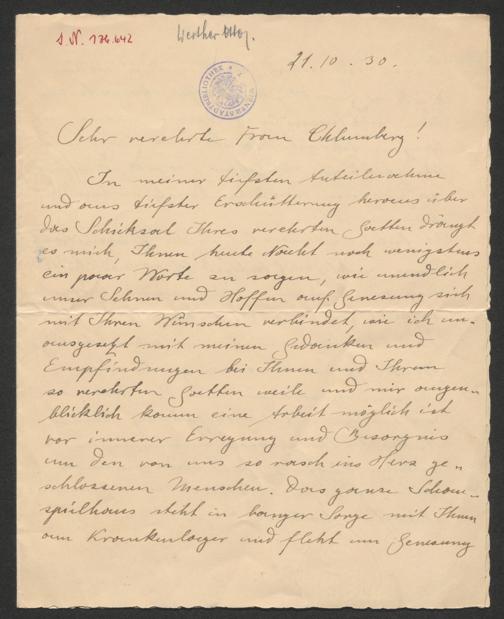 J. N. 136.642
Werther Otto.
WIENER STADTBIBLIOTHEK
21. 10. 30.
Sehr verehrte Frau Chlumberg!
In meiner tiefsten Anteilnahme
und aus tiefster Erschütterung heraus über
das Schicksal Ihres verehrten Gatten drängt
es mich, Ihnen heute Nacht noch wenigstens
ein paar Worte zu sagen, wie unendlich
unser Sehnen und Hoffen auf Genesung sich
mit Ihren Wünschen verbindet, wie ich un-
ausgesetzt mit meinen Gedanken und
Empfindungen bei Ihnen und Ihrem
so verehrten Gatten weile und mir augen-
blicklich kaum eine Arbeit möglich ist
vor innerer Erregung und Besorgnis
um den von uns so rasch ins Herz ge-
schlossenen Menschen. Das ganze Schau-
spielhaus steht in banger Sorge mit Ihnen
am Krankenlager und fleht um Genesung